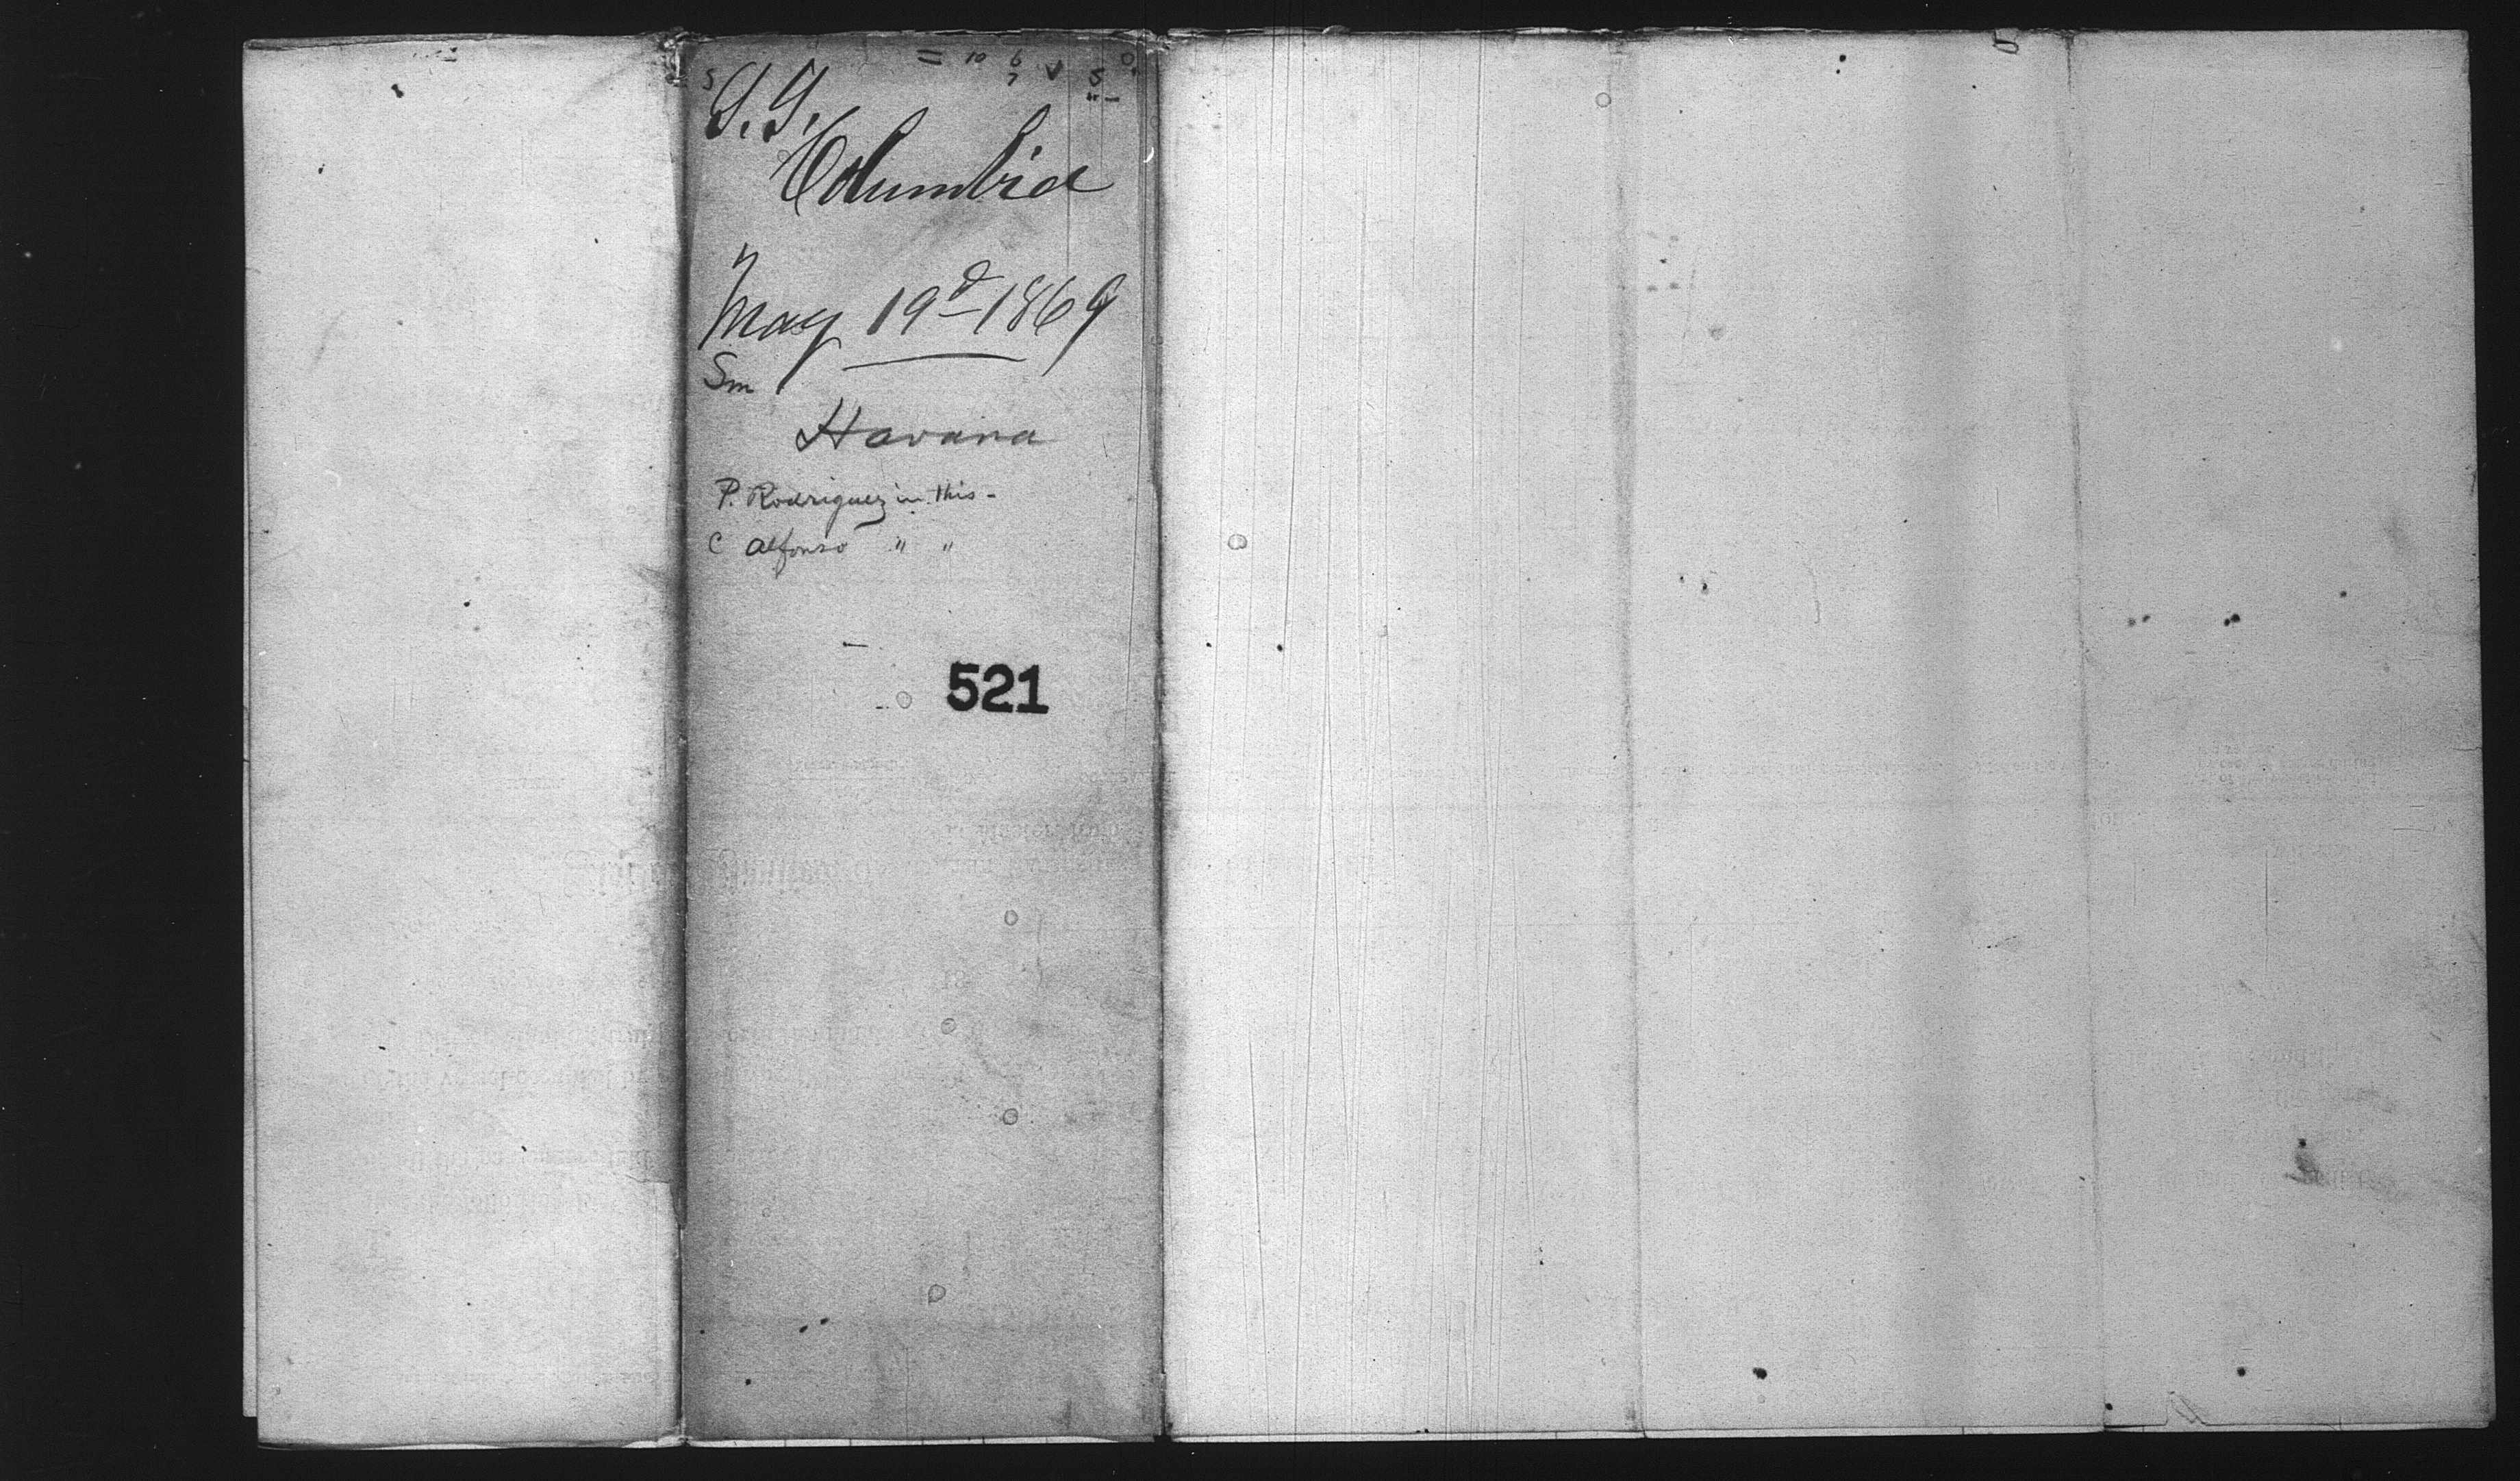 S.S.
Columbia
May 19d 1869
Sm
Havana
P. Rodriguez in this -
C Alfonso " "
521